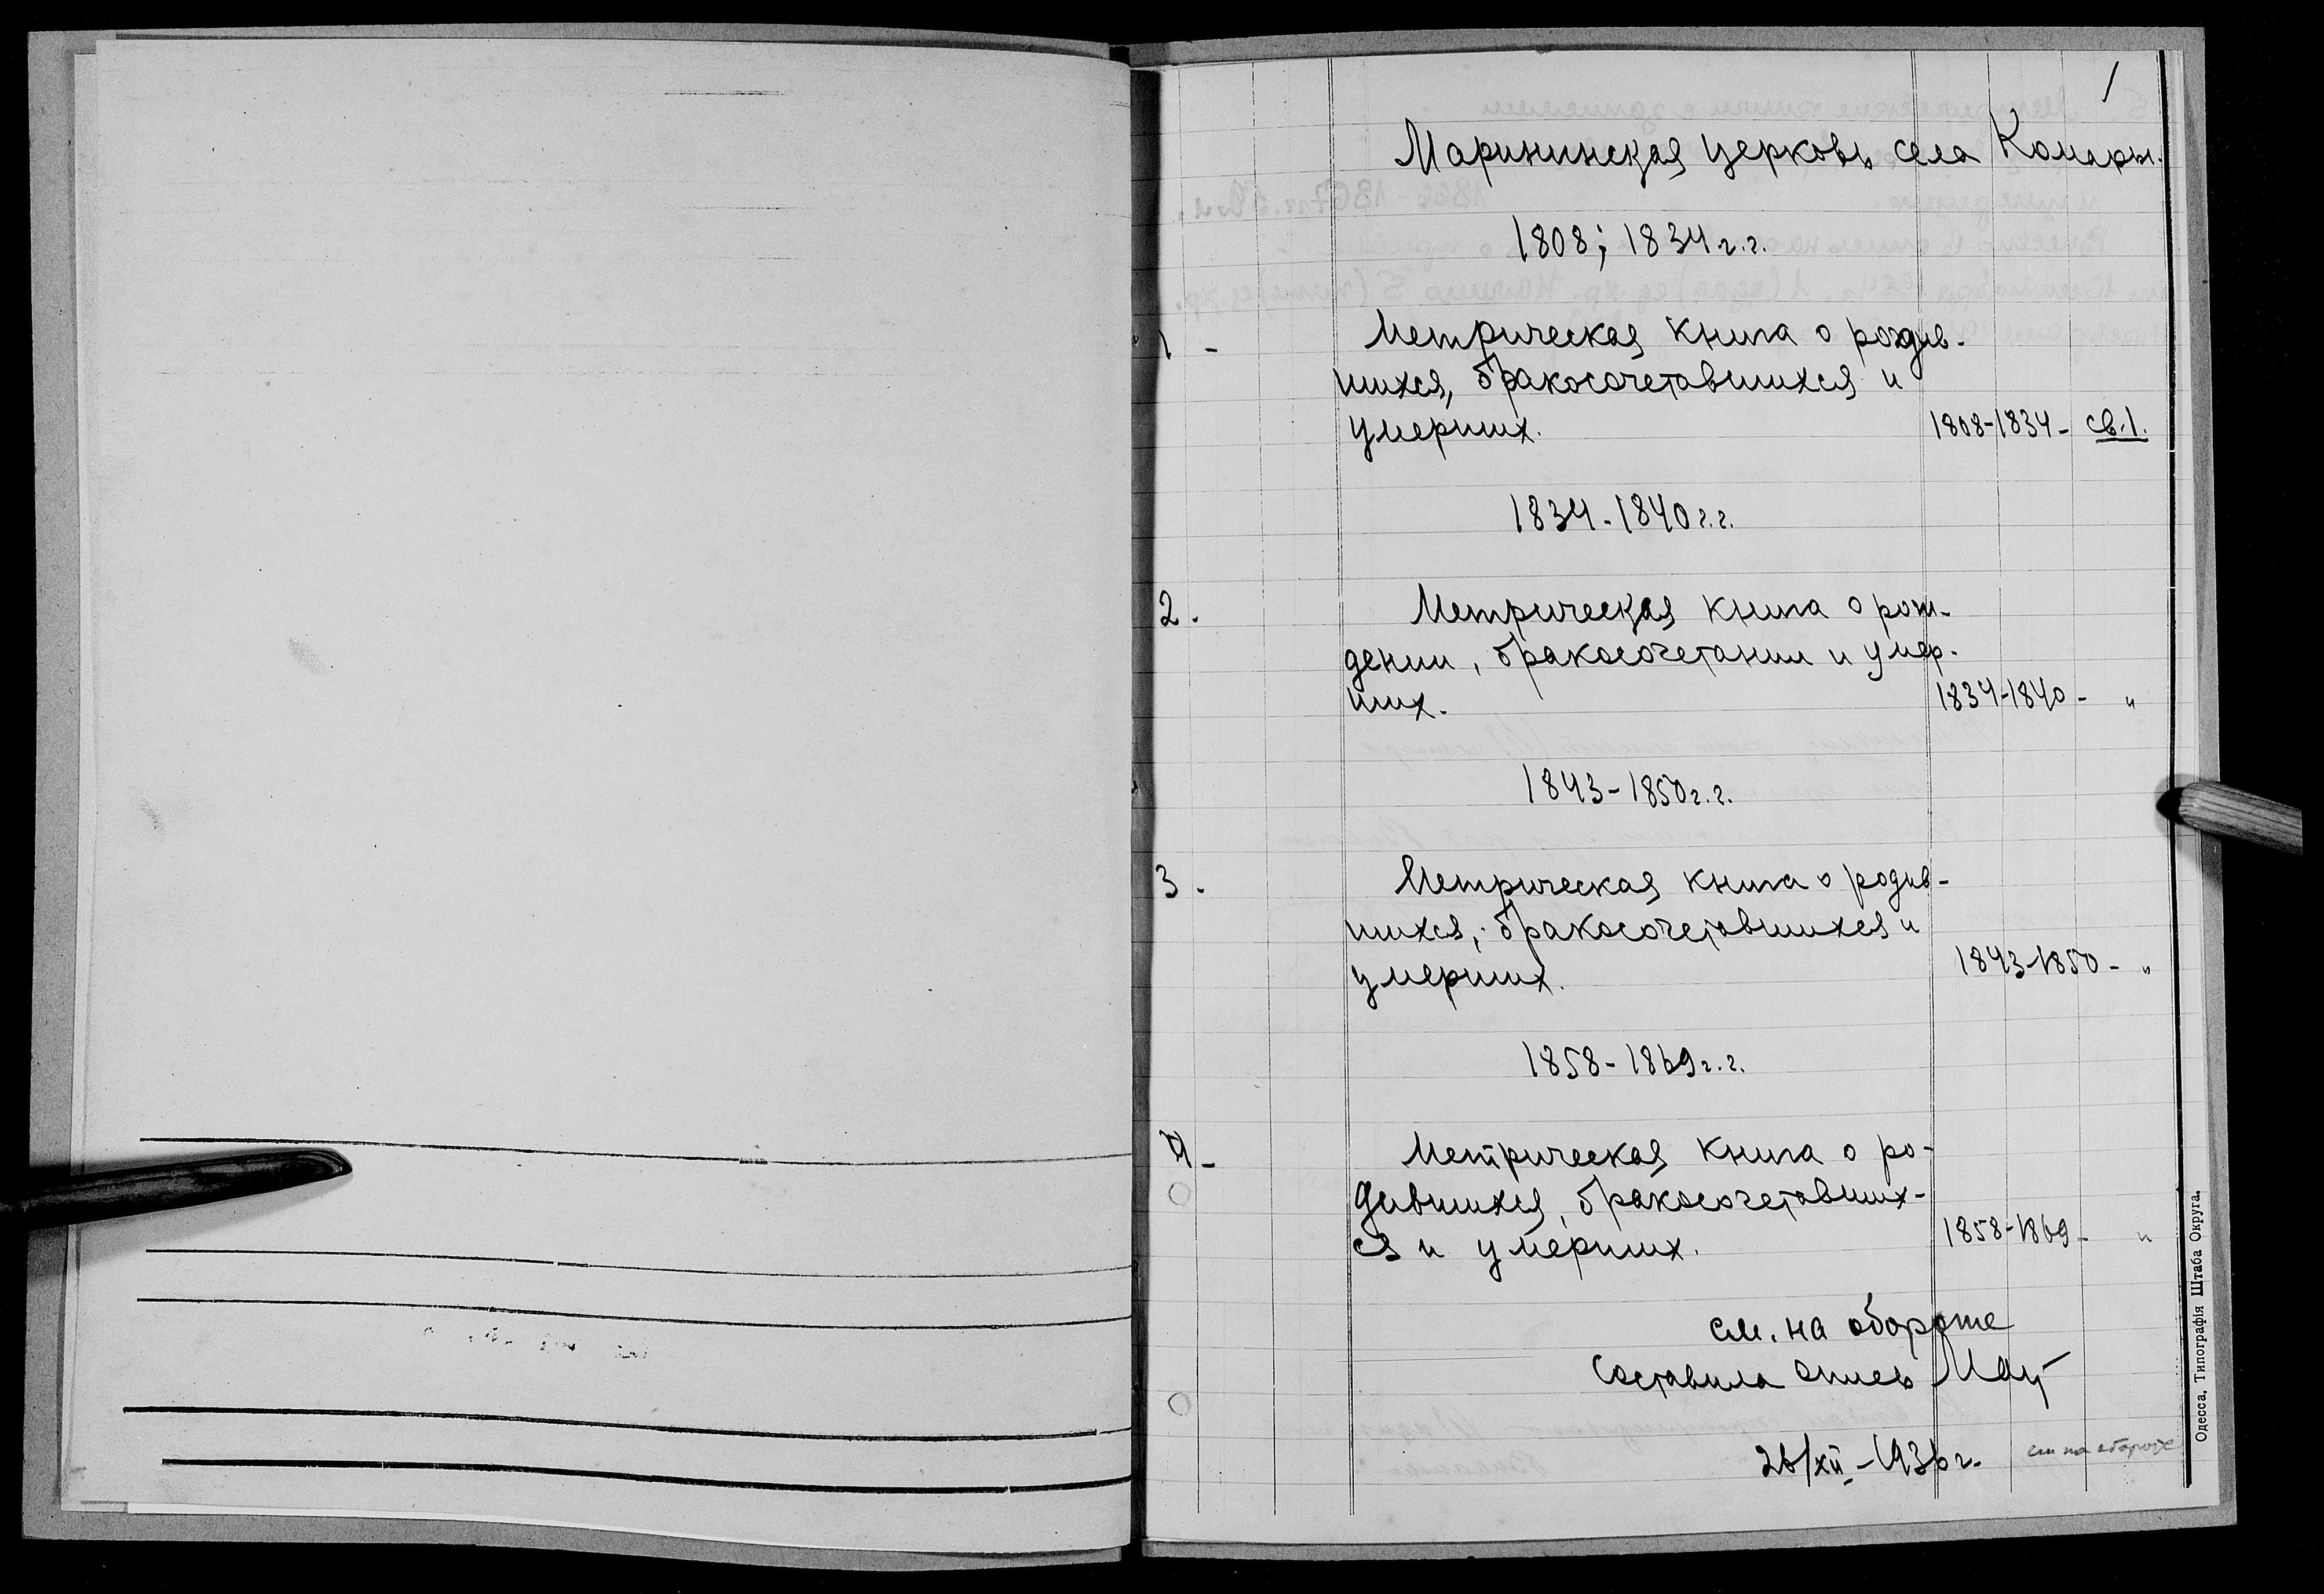 1
Марининская церковь села Комары.
1808; 1834 г.г.
1 - Метрическая книга о родив-
шихся, бракосочетавшихся и
умерших. 1808-1834 - св.1.
1834-1840 г.г.
2. Метрическая книга о рож-
дении, бракосочетании и умер-
ших. 1834-1840 - "
1843-1850 г.г.
3. Метрическая книга о родив-
шихся, бракосочетавшихся и
умерших. 1843-1850 - "
1858-1869 г.г.
4 - Метрическая книга о ро-
дившихся, бракосочетавших-
ся и умерших. 1858-1869 - "
см. на обороте
Составила опись
26/XII-1936 г. см на обороте
Одесса. Типографія Штаба Округа.